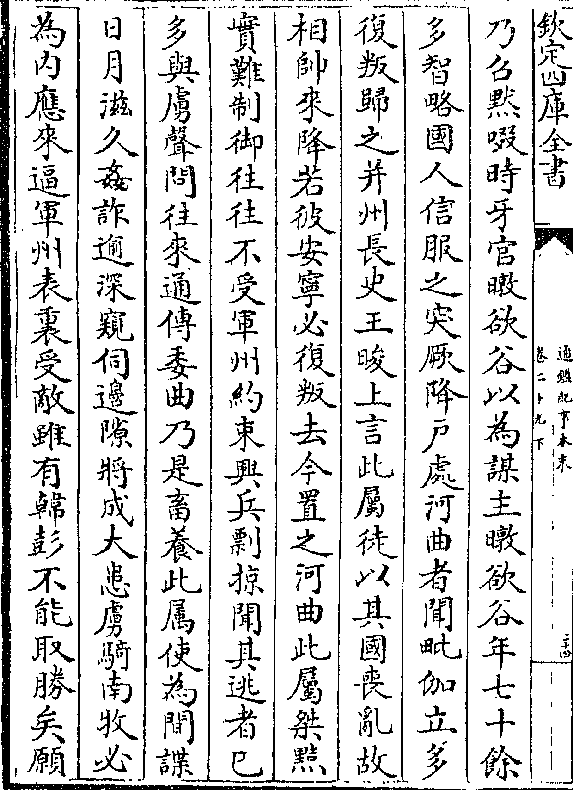 欽定四庫全書
通鑑紀事本末
卷二十九下
二十四
乃召黙啜時牙官暾欲谷以為謀主暾欲谷年七十餘
多智略國人信服之突厥降戸處河曲者聞毗伽立多
復叛歸之并州長史王晙上言此屬徒以其國喪亂故
相帥來降若彼安寧必復叛去今置之河曲此屬桀黠
實難制御往往不受軍州約束興兵剽掠聞其逃者已
多與虜聲問往來通傳委曲乃是畜養此屬使為間諜
日月滋久姦詐逾深窺伺邊隙將成大患虜騎南牧必
為内應來逼軍州表裏受敵雖有韓彭不能取勝矣願